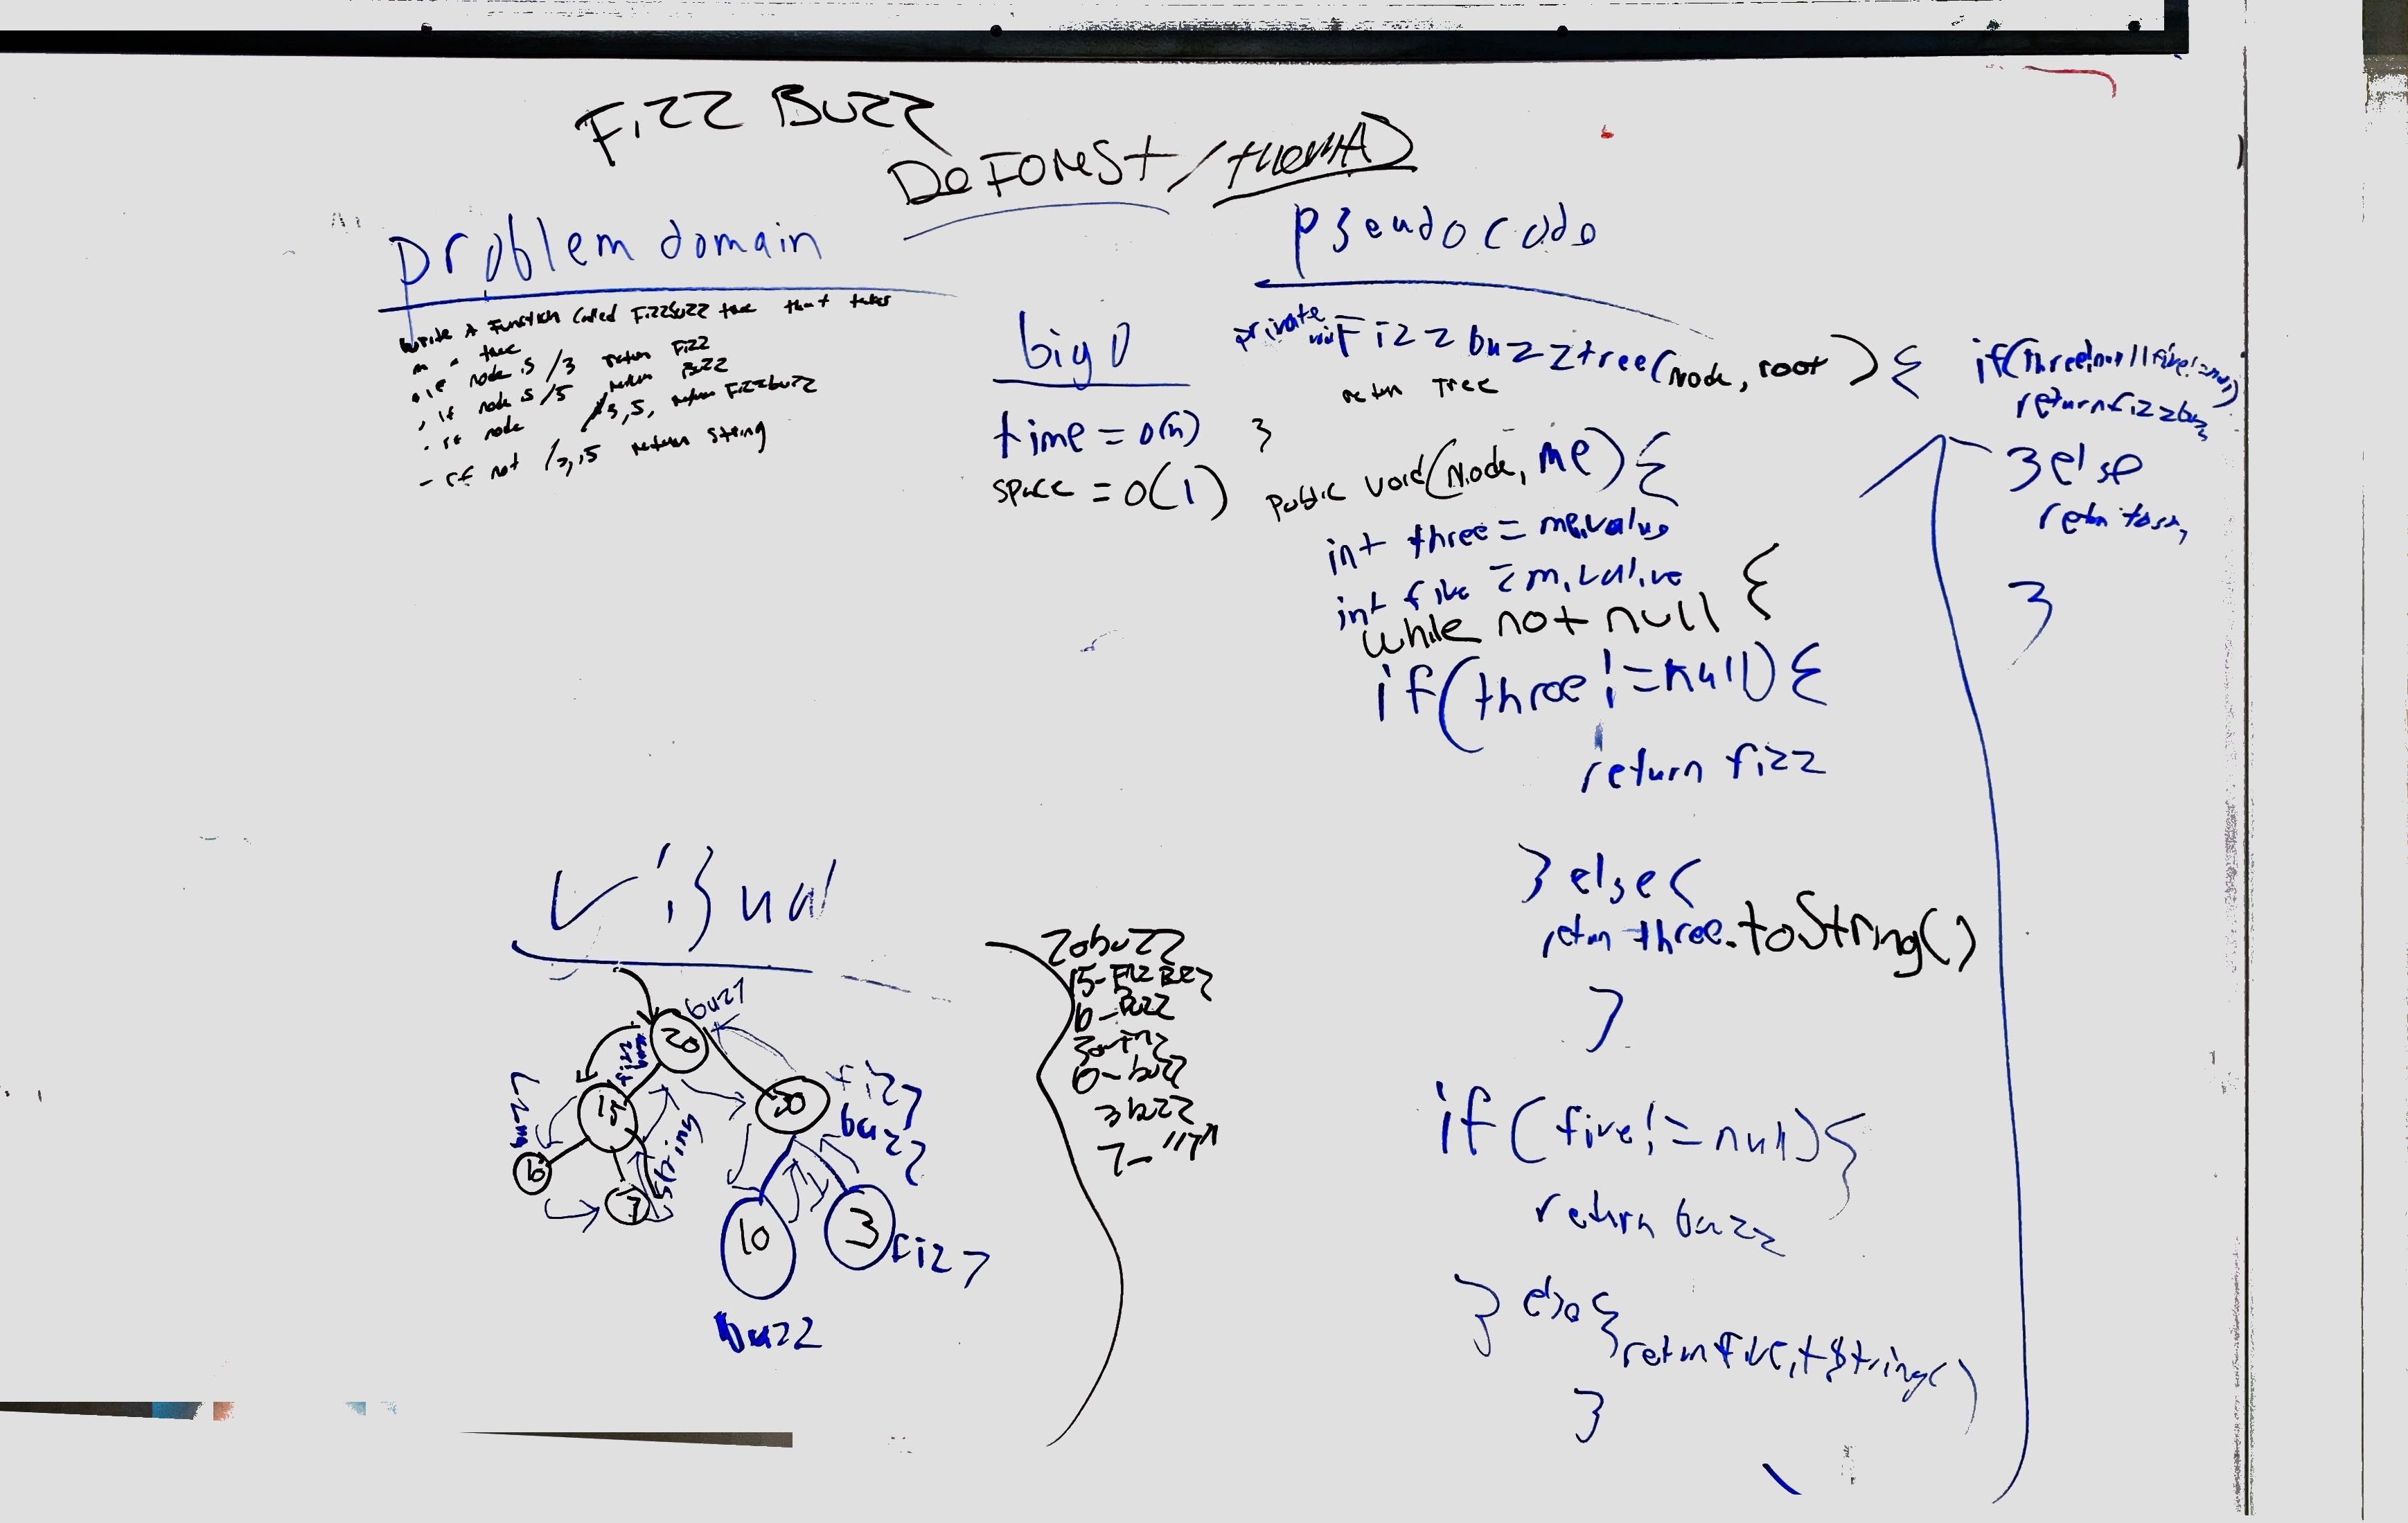 Fizz Buzz
DeForest /
problem domain
Write A Function Called FizzBuzz tree that takes
in a tree
• if node is /3 return Fizz
, if node is /5 return Buzz
- if node /3,5, return Fizzbuzz
- if not /3,5 return string
big O
time = O(n)
space = O(1)
pseudo code
private void Fizzbuzztree(node, root) {
return Tree
}
public void(Node, me) {
int three = me.value
int five = m.value
while not null {
if(three != null) {
return fizz
} else {
return three.toString()
}
if (five != null) {
return buzz
} else {
return five.toString()
}
if(three!null||five!=null)
return fizzbuzz
} else
return
}
visual
buzz
20
fizz
buzz
15
buzz
10
7
string
30
fizz
buzz
10
buzz
3
fizz
20buzz
15-FIZZBUZZ
10-Buzz
10-buzz
3buzz
7-"7"